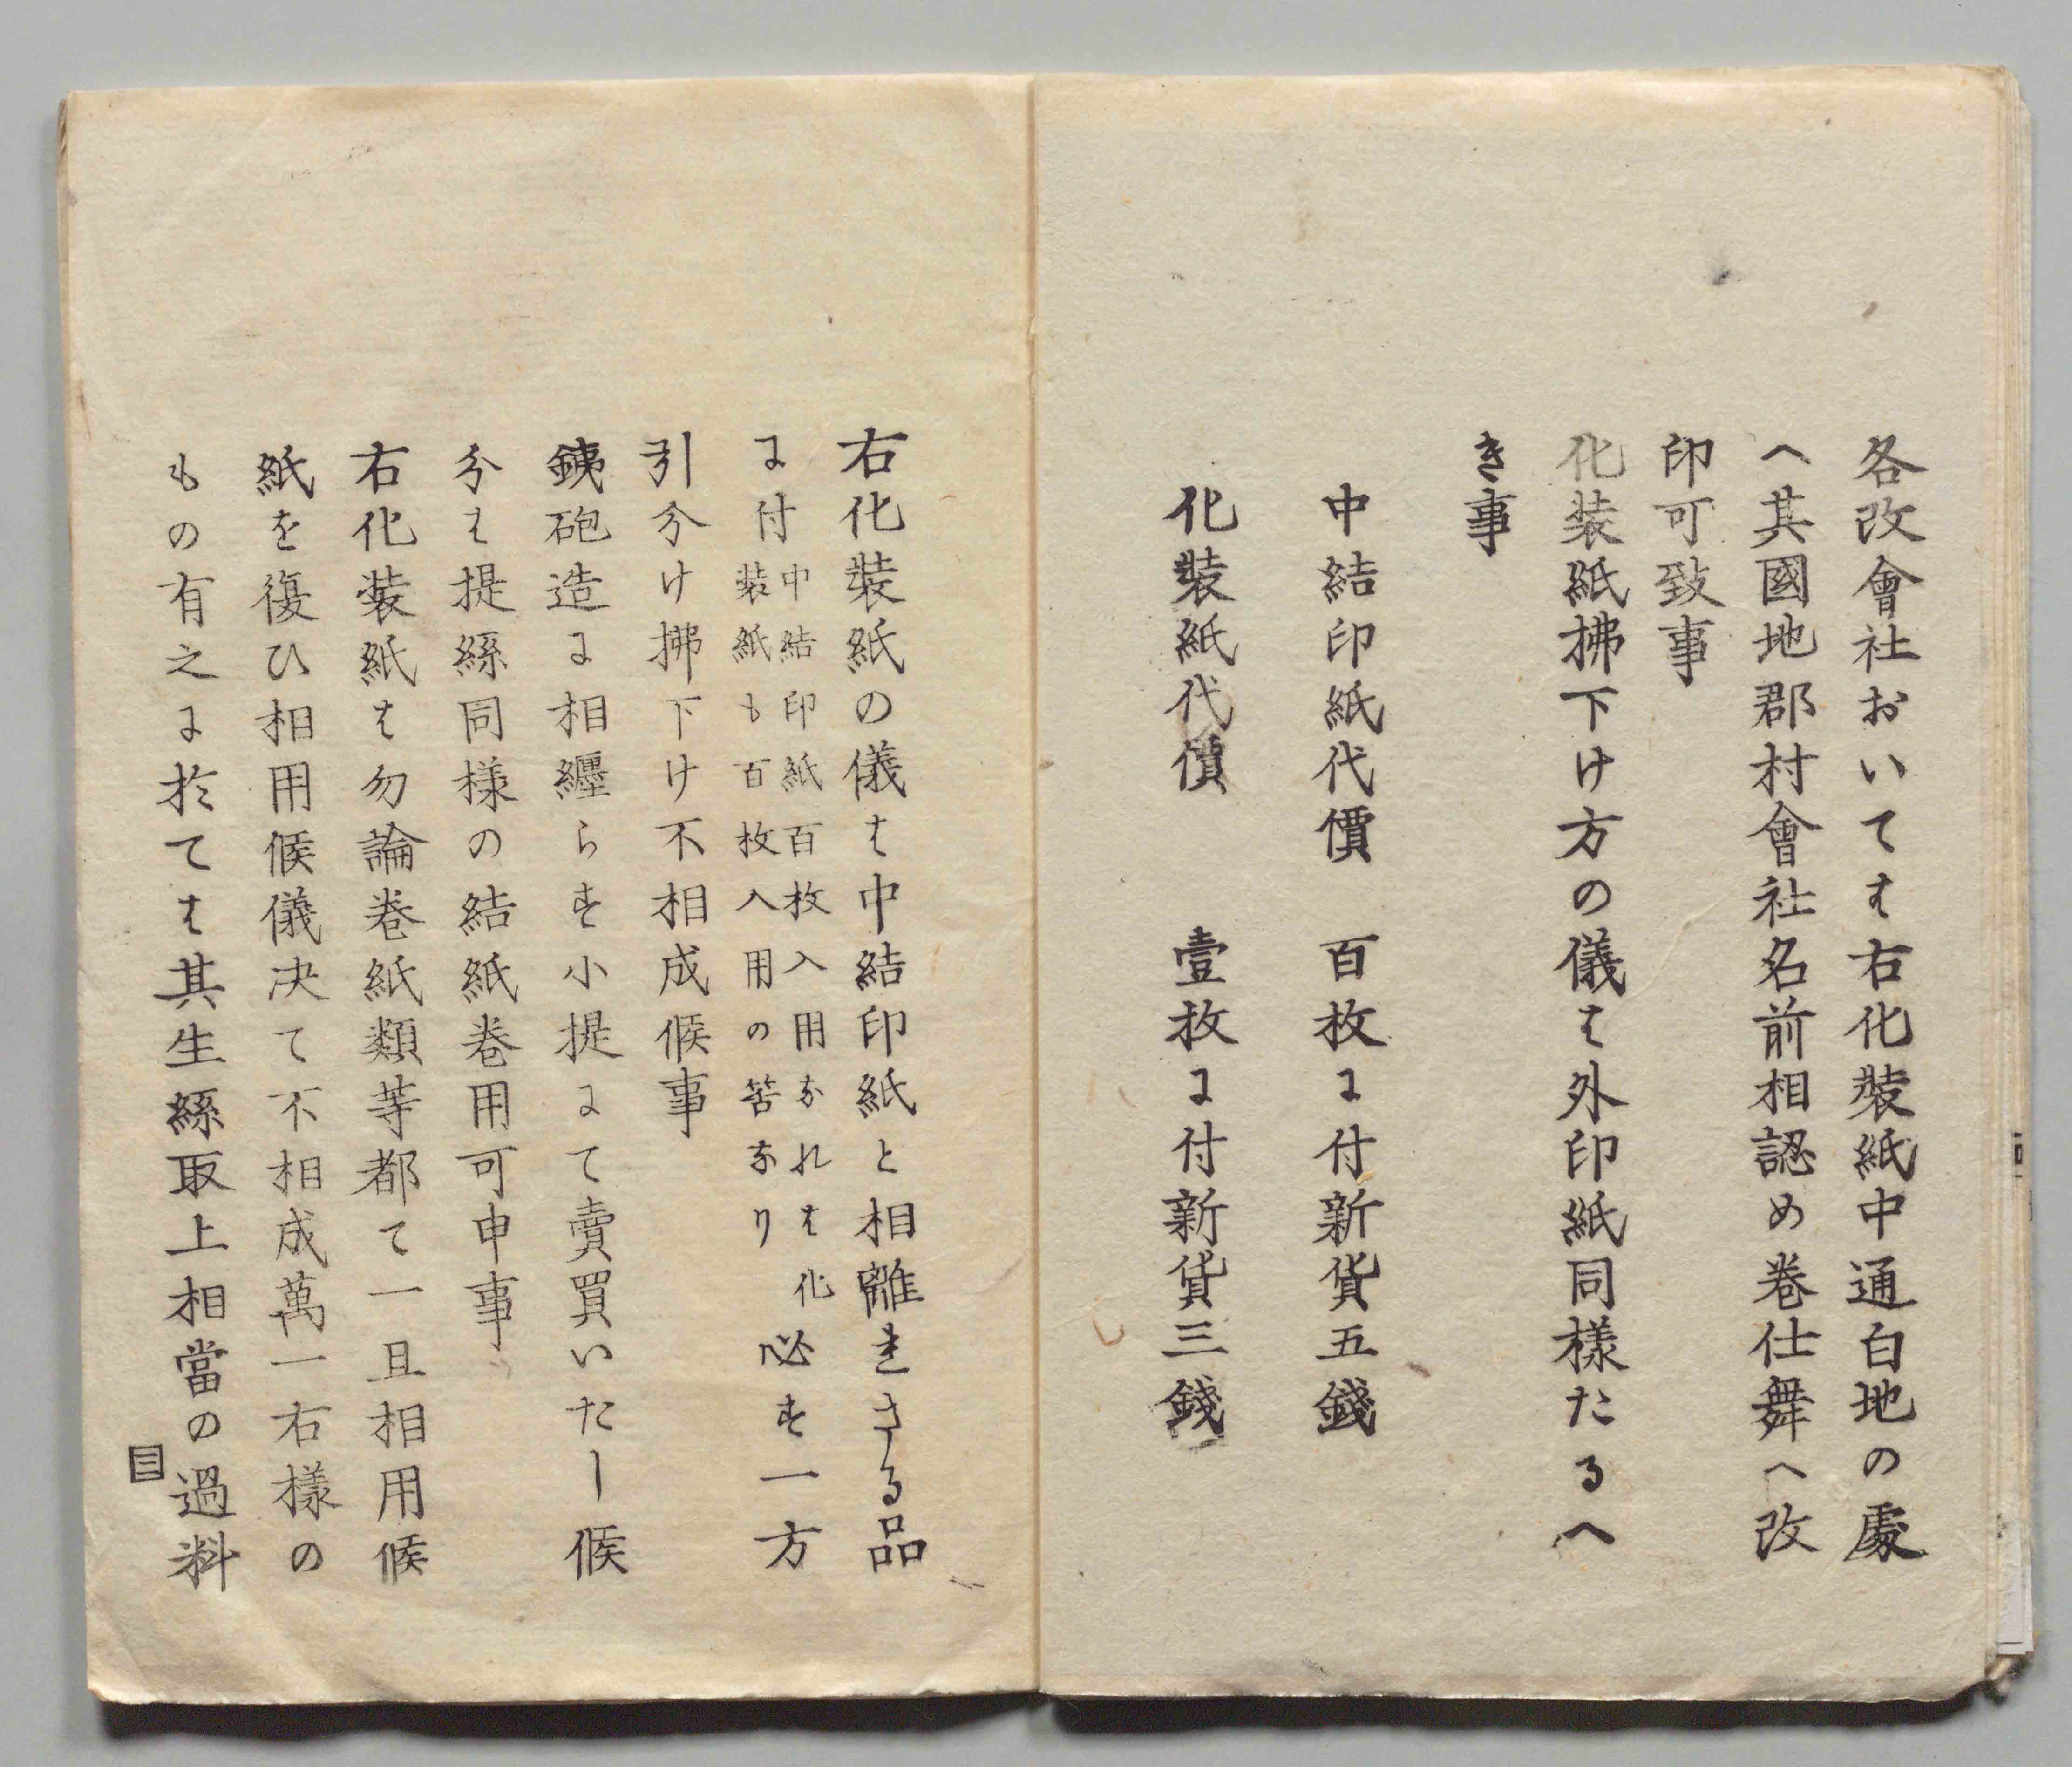 各改會社おいてハ右化装紙中通白地の處
へ其國地郡村會社名前相認め巻仕舞へ改
印可致事
化装紙拂下け方の儀ハ外印紙同様たるへ
き事
中結印紙代價　百枚に付新貨五錢
化装紙代價　壹枚に付新貨三錢
右化裝紙の儀ハ中結印紙と相離れさる品
に付中結印紙百枚入用なれハ化装紙も百枚入用の筈なり必す一方
引分け拂下け不相成候事
銕砲造に相纒らす小提にて賣買いたし候
分ハ提絲同様の結紙巻用可申事
右化装紙ハ勿論巻紙類等都て一旦相用候
紙を復ひ相用候儀决て不相成萬一右様の
もの有之に於てハ其生絲取上相當の過料
三